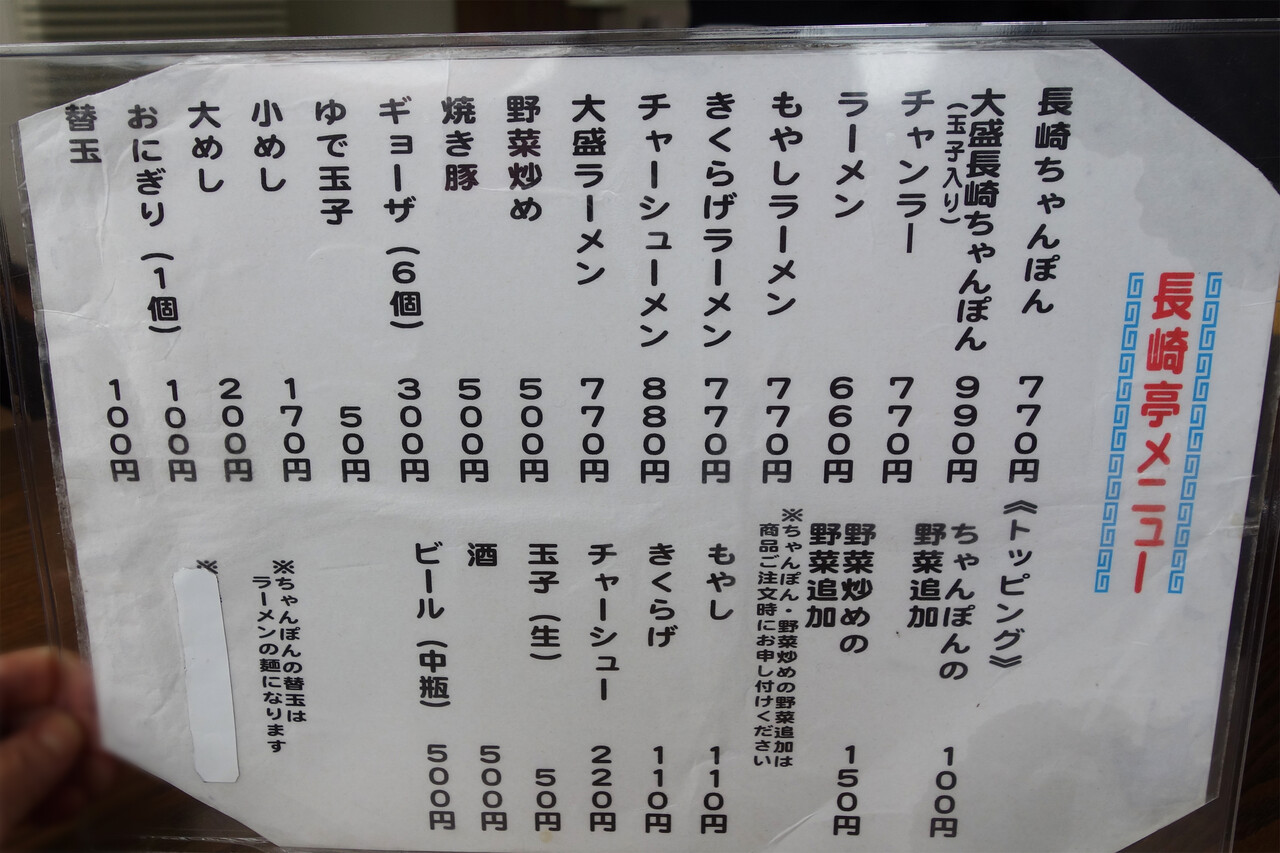 長崎亭メニュー
長崎ちゃんぽん 770円
大盛長崎ちゃんぽん 990円
(玉子入り)
チャンラー 770円
ラーメン 660円
もやしラーメン 770円
きくらげラーメン 770円
チャーシューメン 880円
大盛ラーメン 770円
野菜炒め 500円
焼き豚 500円
ギョーザ(6個) 300円
ゆで玉子 50円
小めし 170円
大めし 200円
おにぎり(1個) 100円
替玉 100円
《トッピング》
ちゃんぽんの
野菜追加 100円
野菜炒めの
野菜追加 150円
※ちゃんぽん・野菜炒めの野菜追加は
商品ご注文時にお申し付けください
もやし 110円
きくらげ 110円
チャーシュー 220円
玉子(生) 50円
酒 500円
ビール(中瓶) 500円
※ちゃんぽんの替玉は
ラーメンの麺になります
※